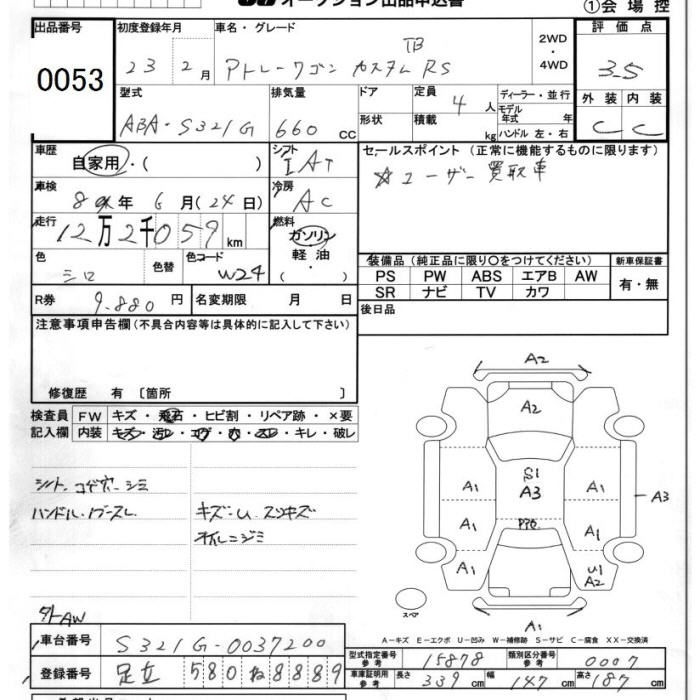 オークション出品申込書
①会場控
出品番号
0053
初度登録年月
23 2月
車名・グレード
TB
アトレーワゴン カスタムRS
2WD
・
4WD
評価点
3.5
外装 内装
C C
型式
ABA-S321G
排気量
660 cc
ドア
形状
定員 4 人
積載 kg
ディーラー・並行
モデル年式 年
ハンドル 左・右
車歴
自家用・( )
シフト
IAT
セールスポイント (正常に機能するものに限ります)
☆ユーザー買取車
車検
8年 6月(24日)
冷房
AC
走行
12万2千059km
燃料
ガソリン
軽油
・
( )
色
シロ
色替
色コード
W24
装備品(純正品に限り〇をつけてください)
新車保証書
PS PW ABS エアB AW
有・無
SR ナビ TV カワ
R券 9.880 円
名変期限 月 日
後日品
注意事項申告欄(不具合内容等は具体的に記入して下さい)
修復歴 有 〔箇所 〕
検査員 FW キズ・飛石・ヒビ割・リペア跡・×要
記入欄 内装 キズ・汚レ・コゲ・穴・スレ・キレ・破レ
シート.コゲ穴.シミ
ハンドル.ノブスレ
キズ・U.スリキズ
オイルニジミ
外AW
A2
A2
S1
A3
A1 A1
A3
A1 A1
A1
U1
A2
スペア
A1
A−キズ E−エクボ U−凹み W−補修跡 S−サビ C−腐食 XX−交換済
車台番号 S321G-0037200
登録番号 足立 580 ね 8889
型式指定番号 参考 15878
類別区分番号 参考 0007
車庫証明用 参考 長さ 339 cm 幅 147 cm 高さ 187 cm